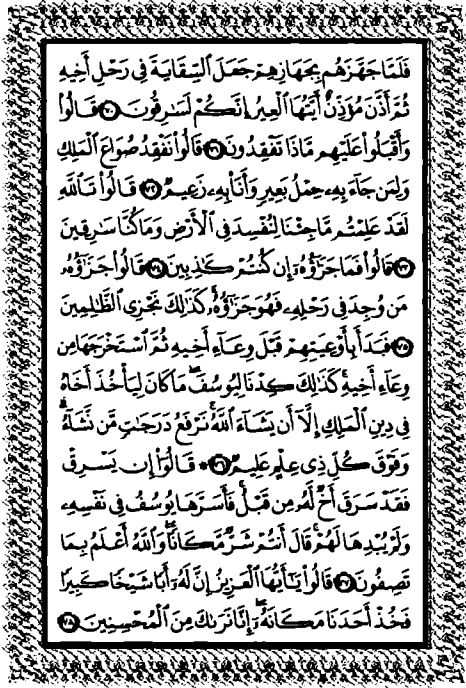 فَلَمَّا جَهَّزَهُم بِجَهَازِهِمْ جَعَلَ ٱلسِّقَايَةَ فِى رَحْلِ أَخِيهِ
ثُمَّ أَذَّنَ مُؤَذِّنٌ أَيَّتُهَا ٱلْعِيرُ إِنَّكُمْ لَسَٰرِقُونَ ٧٠ قَالُوا۟
وَأَقْبَلُوا۟ عَلَيْهِم مَّاذَا تَفْقِدُونَ ٧١ قَالُوا۟ نَفْقِدُ صُوَاعَ ٱلْمَلِكِ
وَلِمَن جَآءَ بِهِۦ حِمْلُ بَعِيرٍ وَأَنَا۠ بِهِۦ زَعِيمٌ ٧٢ قَالُوا۟ تَٱللَّهِ
لَقَدْ عَلِمْتُم مَّا جِئْنَا لِنُفْسِدَ فِى ٱلْأَرْضِ وَمَا كُنَّا سَٰرِقِينَ
٧٣ قَالُوا۟ فَمَا جَزَٰٓؤُهُۥٓ إِن كُنتُمْ كَٰذِبِينَ ٧٤ قَالُوا۟ جَزَٰٓؤُهُۥ
مَن وُجِدَ فِى رَحْلِهِۦ فَهُوَ جَزَٰٓؤُهُۥ ۚ كَذَٰلِكَ نَجْزِى ٱلظَّٰلِمِينَ
٧٥ فَبَدَأَ بِأَوْعِيَتِهِمْ قَبْلَ وِعَآءِ أَخِيهِ ثُمَّ ٱسْتَخْرَجَهَا مِن
وِعَآءِ أَخِيهِ ۚ كَذَٰلِكَ كِدْنَا لِيُوسُفَ ۖ مَا كَانَ لِيَأْخُذَ أَخَاهُ
فِى دِينِ ٱلْمَلِكِ إِلَّآ أَن يَشَآءَ ٱللَّهُ ۚ نَرْفَعُ دَرَجَٰتٍ مَّن نَّشَآءُ ۗ
وَفَوْقَ كُلِّ ذِى عِلْمٍ عَلِيمٌ ٧٦ ۞ قَالُوٓا۟ إِن يَسْرِقْ
فَقَدْ سَرَقَ أَخٌ لَّهُۥ مِن قَبْلُ ۚ فَأَسَرَّهَا يُوسُفُ فِى نَفْسِهِۦ
وَلَمْ يُبْدِهَا لَهُمْ ۚ قَالَ أَنتُمْ شَرٌّ مَّكَانًا ۖ وَٱللَّهُ أَعْلَمُ بِمَا
تَصِفُونَ ٧٧ قَالُوا۟ يَٰٓأَيُّهَا ٱلْعَزِيزُ إِنَّ لَهُۥٓ أَبًا شَيْخًا كَبِيرًا
فَخُذْ أَحَدَنَا مَكَانَهُۥٓ ۖ إِنَّا نَرَىٰكَ مِنَ ٱلْمُحْسِنِينَ ٧٨